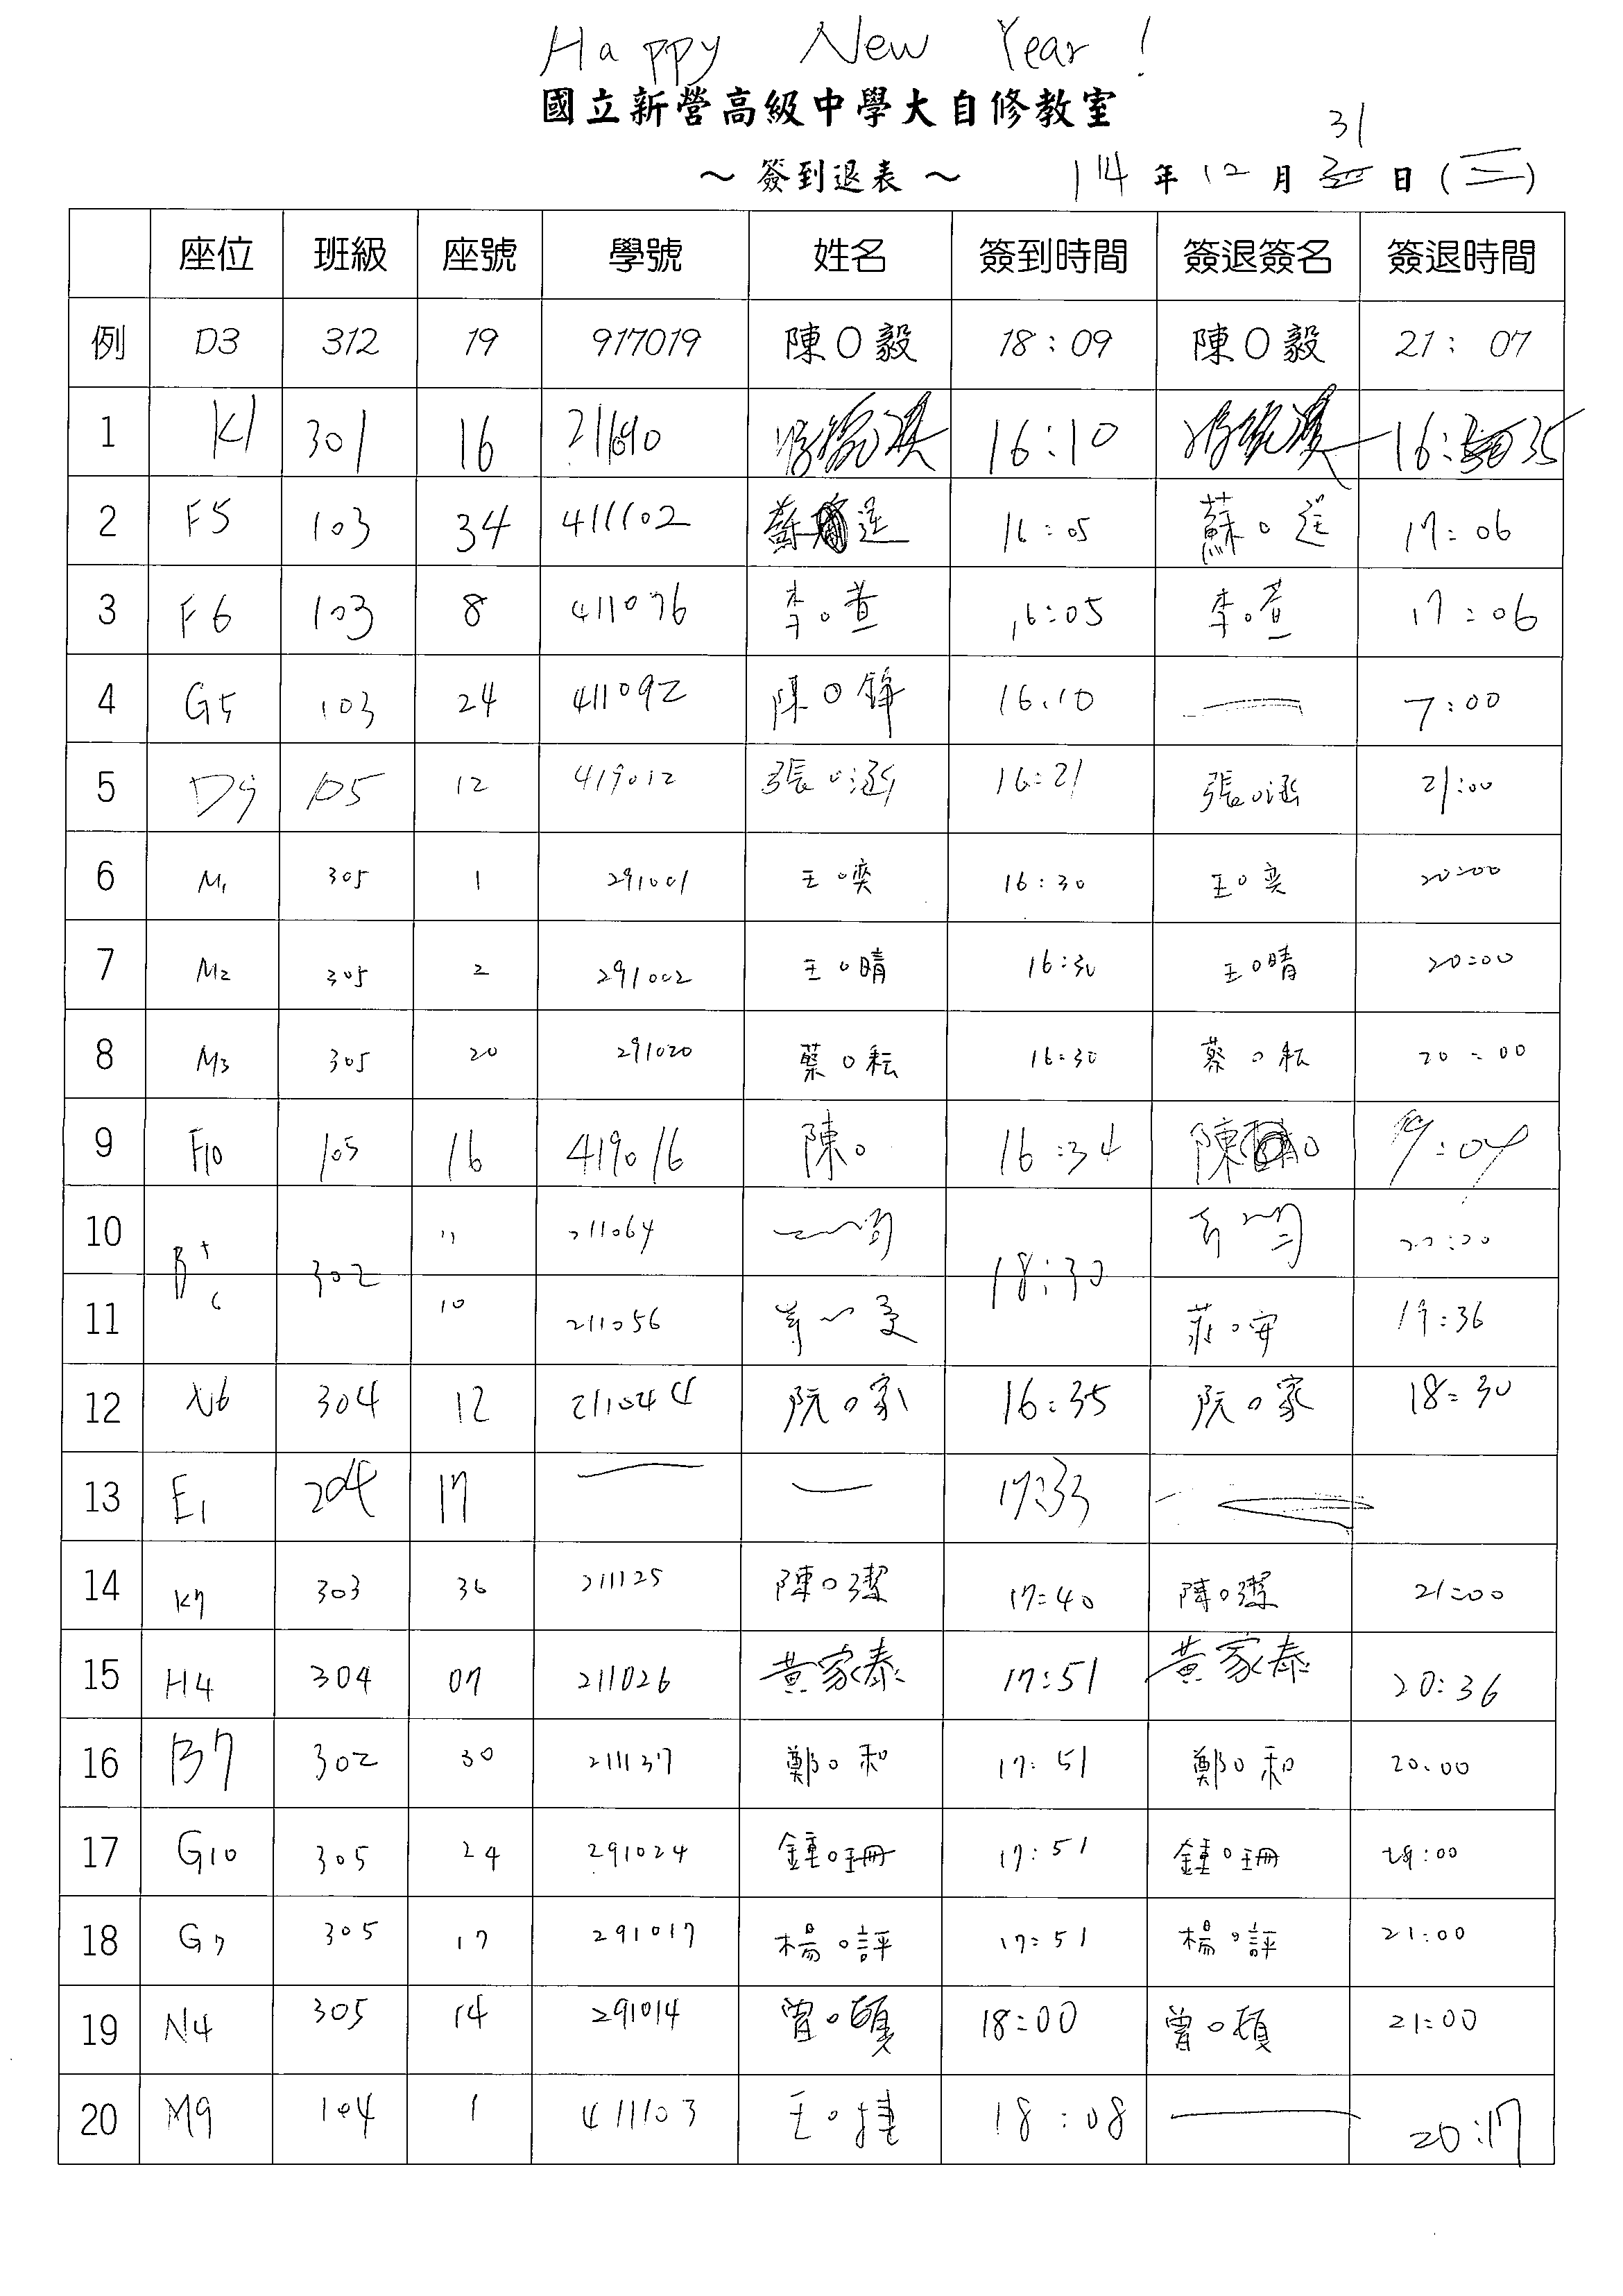 Happy New Year!
國立新營高級中學大自修教室
～ 簽到退表 ～ 114 年 12 月 31 日 (三)
座位 班級 座號 學號 姓名 簽到時間 簽退簽名 簽退時間
例 D3 312 19 917019 陳○毅 18:09 陳○毅 21:07
1 K1 301 16 211690 16:10 16:35
2 F5 103 34 411102 蘇 16:05 蘇○ 17:06
3 F6 103 8 411076 李○萱 16:05 李○萱 17:06
4 G5 103 24 411092 陳○鋒 16.10 — 7:00
5 D9 105 12 419012 張○涵 16:21 張○涵 21:00
6 M1 305 1 291001 王○奕 16:30 王○奕 20:00
7 M2 305 2 291002 王○晴 16:30 王○晴 20:00
8 M3 305 20 291020 蔡○耘 16:30 蔡○耘 20:00
9 F10 105 16 419016 陳○ 16:34 陳○
10 B 302 11 211064 18:30
11 6 10 211056 莊○安 19:36
12 N6 304 12 211044 阮○家 16:35 阮○家 18:30
13 E1 204 17 — — 17:33 —
14 K7 303 36 211125 陳○潔 17:40 陳○潔 21:00
15 H4 304 07 211026 黃家泰 17:51 黃家泰 20:36
16 B7 302 30 211137 鄭○和 17:51 鄭○和 20:00
17 G10 305 24 291024 鍾○珊 17:51 鍾○珊 :00
18 G7 305 17 291017 楊○評 17:51 楊○評 21:00
19 N4 305 14 291014 曾○碩 18:00 曾○碩 21:00
20 M9 104 1 411103 王○捷 18:08 — 20:17